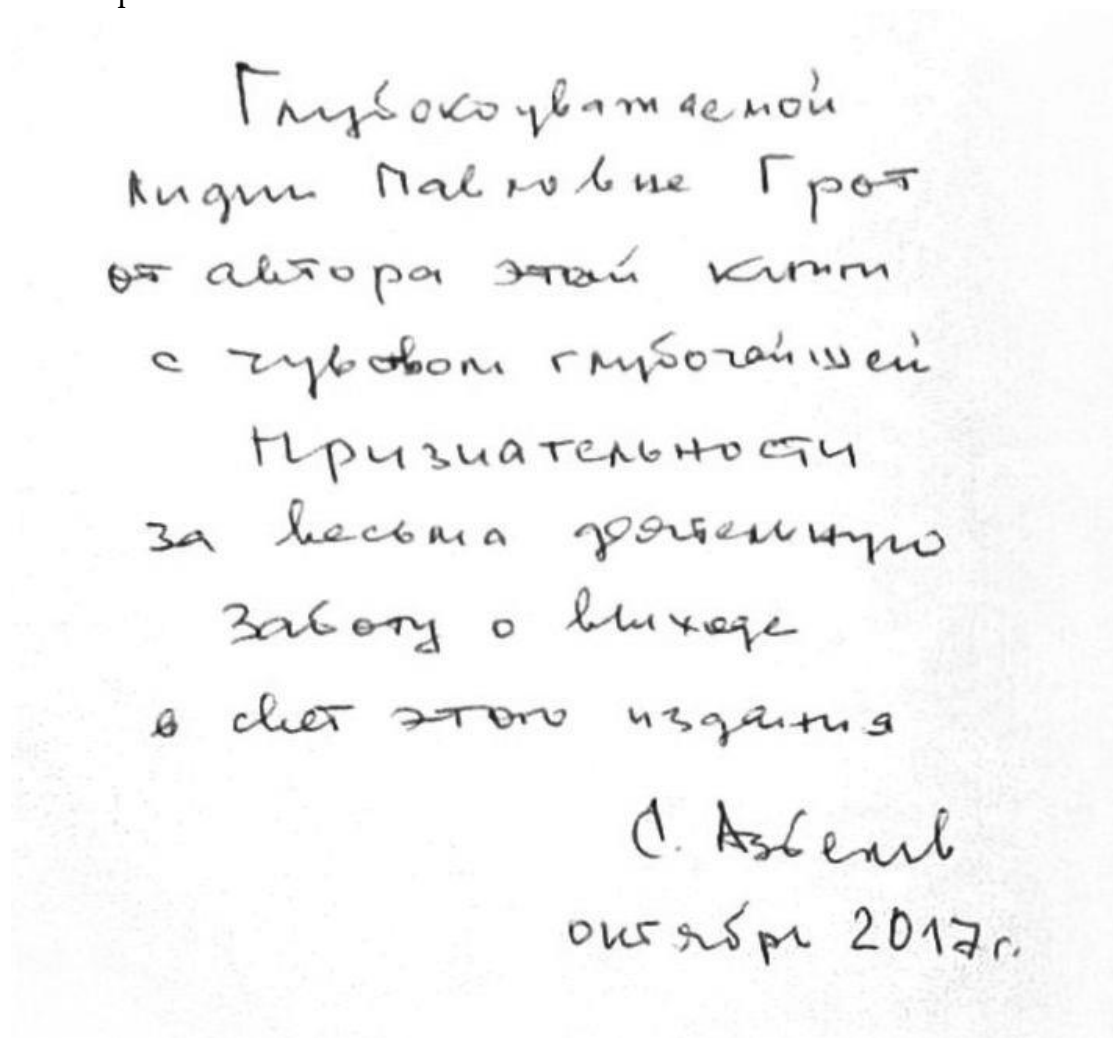 Глубокоуважаемой
Лидии Павловне Грот
от автора этой книги
с чувством глубочайшей
Признательности
за весьма деятельную
заботу о выходе
в свет этого издания
С. Азбелев
октябрь 2017г.